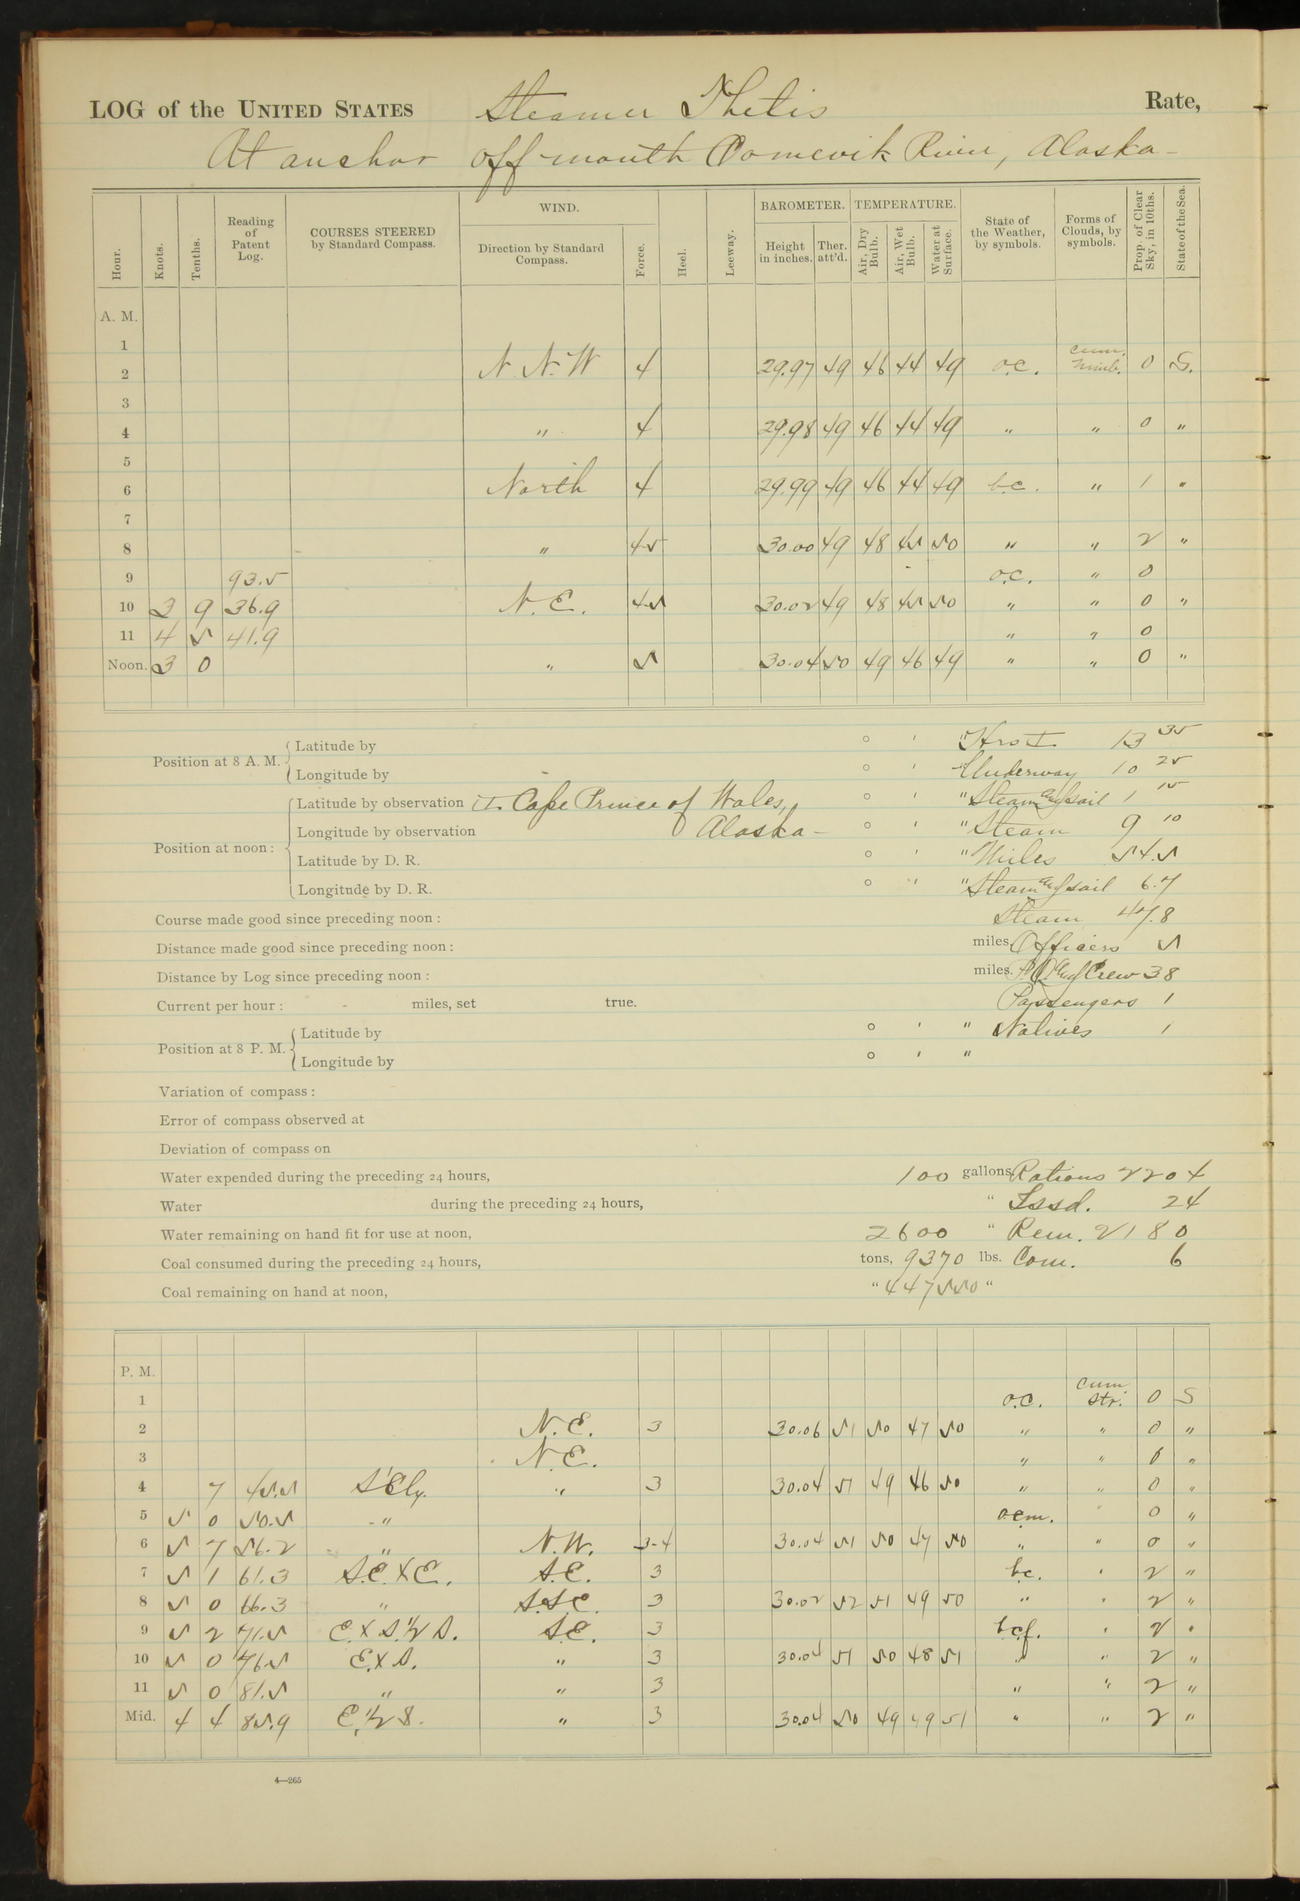 LOG of the UNITED STATES Steamer Thetis Rate,
At anchor off mouth River, Alaska -
Hour. Knots. Tenths. Reading of Patent Log. COURSES STEERED by Standard Compass. WIND. Direction by Standard Compass. Force. Heel. Leeway. BAROMETER. Height in inches. Ther. att'd. TEMPERATURE. Air, Dry Bulb. Air, Wet Bulb. Water at Surface. State of the Weather, by symbols. Forms of Clouds, by symbols. Prop. of Clear Sky, in 10ths. State of the Sea.
A. M.
1
2 N.N.W 4 29.97 49 46 44 49 o.c. cum. Nimb. 0 S.
3
4 " 4 29.98 49 46 44 49 " " 0 "
5
6 North 4 29.99 49 46 44 49 b.c. " 1 "
7
8 " 4-5 30.00 49 48 45 50 " " 2 "
9 93.5 o.c. " 0
10 3 9 36.9 N.E. 4-5 30.02 49 48 45 50 " " 0 "
11 4 5 41.9 " " 0
Noon. 3 0 " 5 30.04 50 49 46 49 " " 0 "
Position at 8 A. M. Latitude by ° ' " Hrs I 13 35
Longitude by ° ' " Underway 10 25
Position at noon: Latitude by observation Cape Prince of Wales, ° ' " Steam and sail 1 15
Longitude by observation Alaska - ° ' " Steam 9 10
Latitude by D. R. ° ' " Miles 54.5
Longitude by D. R. ° ' " Steam and sail 6.7
Course made good since preceding noon: Steam 47.8
Distance made good since preceding noon: miles. Officers 5
Distance by Log since preceding noon: miles. P.O. and Crew 38
Current per hour: - miles, set true. Passengers 1
Position at 8 P. M. Latitude by ° ' " Natives 1
Longitude by ° ' "
Variation of compass:
Error of compass observed at
Deviation of compass on
Water expended during the preceding 24 hours, 100 gallons Rations 2204
Water during the preceding 24 hours, " Issd. 24
Water remaining on hand fit for use at noon, 2600 " Rem. 2180
Coal consumed during the preceding 24 hours, tons, 9370 lbs. Com. 6
Coal remaining on hand at noon, " 447550 "
P. M.
1 o.c. cum. str. 0 S
2 N.E. 3 30.06 51 50 47 50 " " 0 "
3 N.E. " " 0 "
4 7 45.5 S'Ely. " 3 30.04 51 49 46 50 " " 0 "
5 5 0 50.5 " o.c.m. " 0 "
6 5 7 56.2 " N.W. 3-4 30.04 51 50 47 50 " " 0 "
7 5 1 61.3 S.E. X E. S.E. 3 b.c. " 2 "
8 5 0 66.3 " S.S.E. 3 30.02 52 51 49 50 " " 2 "
9 5 2 71.5 E. X S. 1/2 S. S.E. 3 b.c.f. " 2 "
10 5 0 76.5 E. X S. " 3 30.04 51 50 48 51 " " 2 "
11 5 0 81.5 " " 3 " " 2 "
Mid. 4 4 85.9 E. 1/2 S. " 3 30.04 50 49 49 51 " " 2 "
4—265